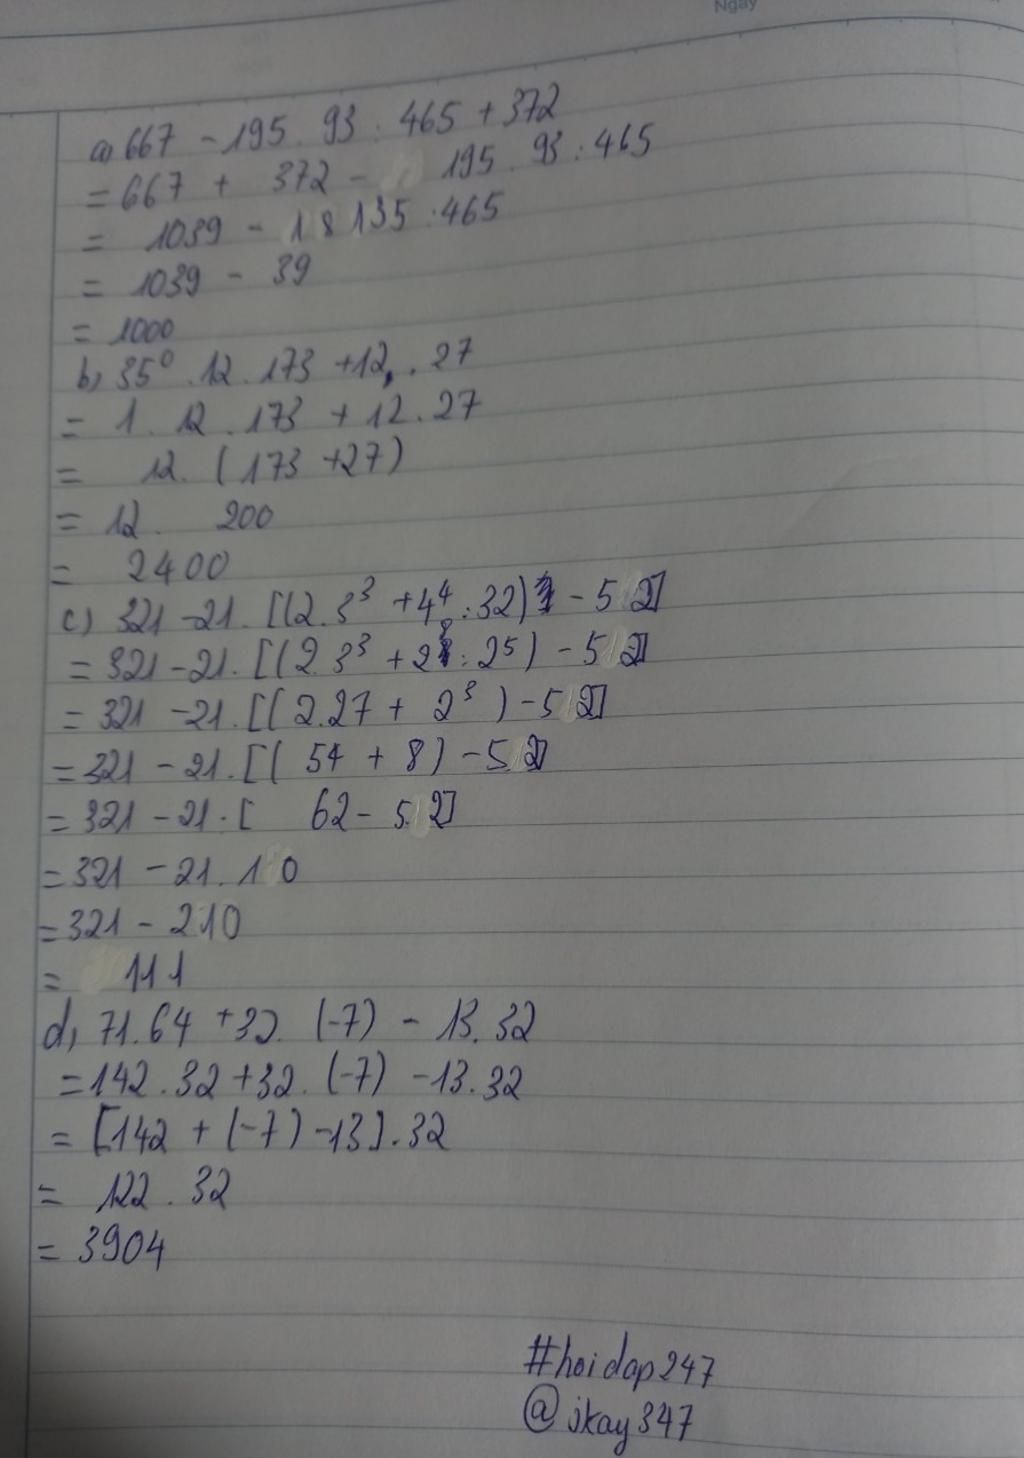 Ngày
a) 667 - 195. 93 : 465 + 372
= 667 + 372 - 195. 93 : 465
= 1039 - 18135 : 465
= 1039 - 39
= 1000
b, 35⁰ . 12 . 173 + 12 . 27
= 1. 12 . 173 + 12 . 27
= 12. (173 + 27)
= 12. 200
= 2400
c) 321 - 21. [(2.3³ + 4⁴ : 32) - 52]
= 321 - 21. [(2.3³ + 2⁸ : 2⁵) - 52]
= 321 - 21. [(2.27 + 2³) - 52]
= 321 - 21. [(54 + 8) - 52]
= 321 - 21. [62 - 52]
= 321 - 21. 10
= 321 - 210
= 111
d, 71. 64 + 32. (-7) - 13. 32
= 142 . 32 + 32. (-7) - 13. 32
= [142 + (-7) - 13]. 32
= 122 . 32
= 3904
#hoidap247
@jkay347